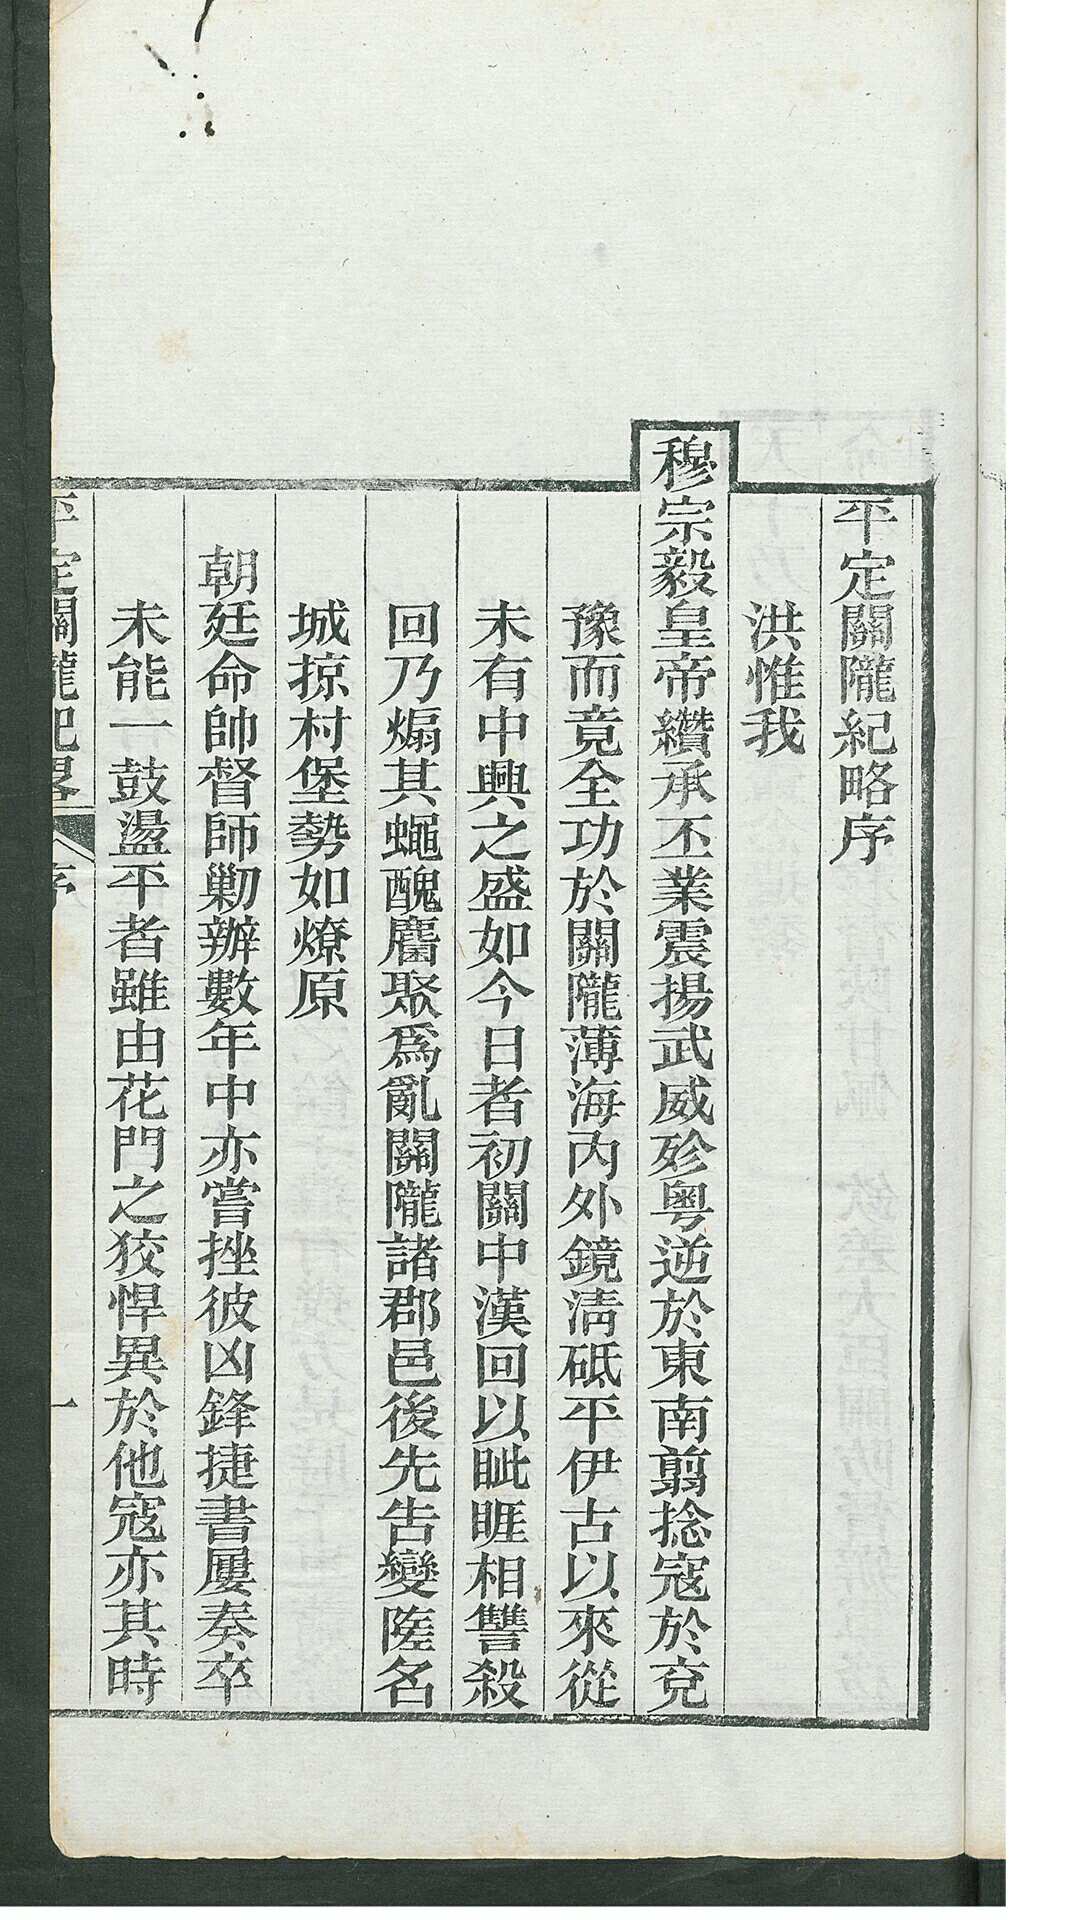 平定關隴紀略序
洪惟我
穆宗毅皇帝纘承丕業震揚武威殄粤逆於東南翦捻寇於兗
豫而竟全功於關隴薄海內外鏡清砥平伊古以來從
未有中興之盛如今日者初關中漢回以眦睚相讐殺
回乃煽其蠅醜麕聚爲亂關隴諸郡邑後先告變隓名
城掠村堡勢如燎原
朝廷命帥督師勦辦數年中亦嘗挫彼凶鋒捷書屢奏卒
未能一鼓盪平者雖由花門之狡悍異於他寇亦其時
平定關隴紀畧 序 一